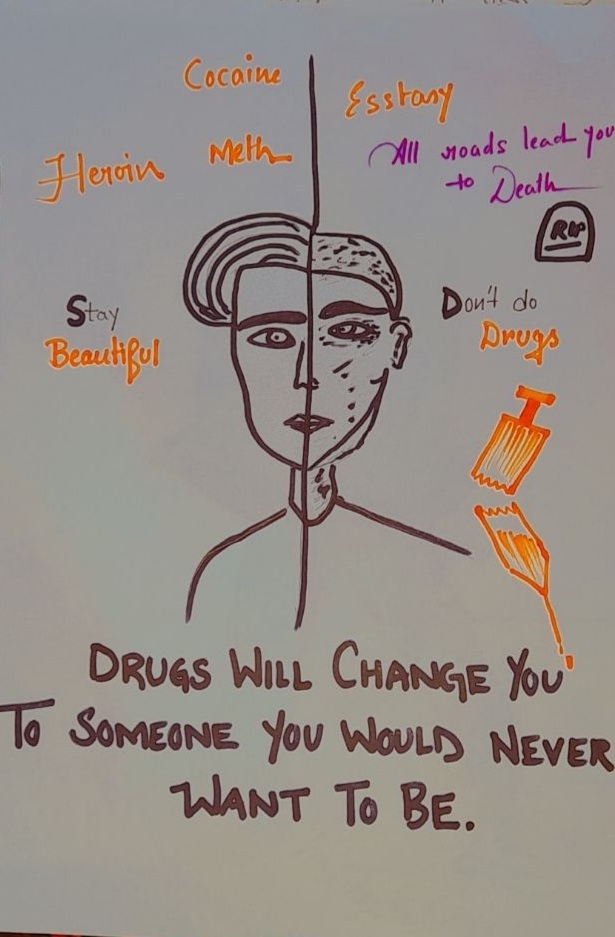 Cocaine
Esstasy
Heroin
Meth
All roads lead you
to Death
RIP
Stay
Beautiful
Don't do
Drugs
DRUGS WILL CHANGE YOU
TO SOMEONE YOU WOULD NEVER
WANT TO BE.